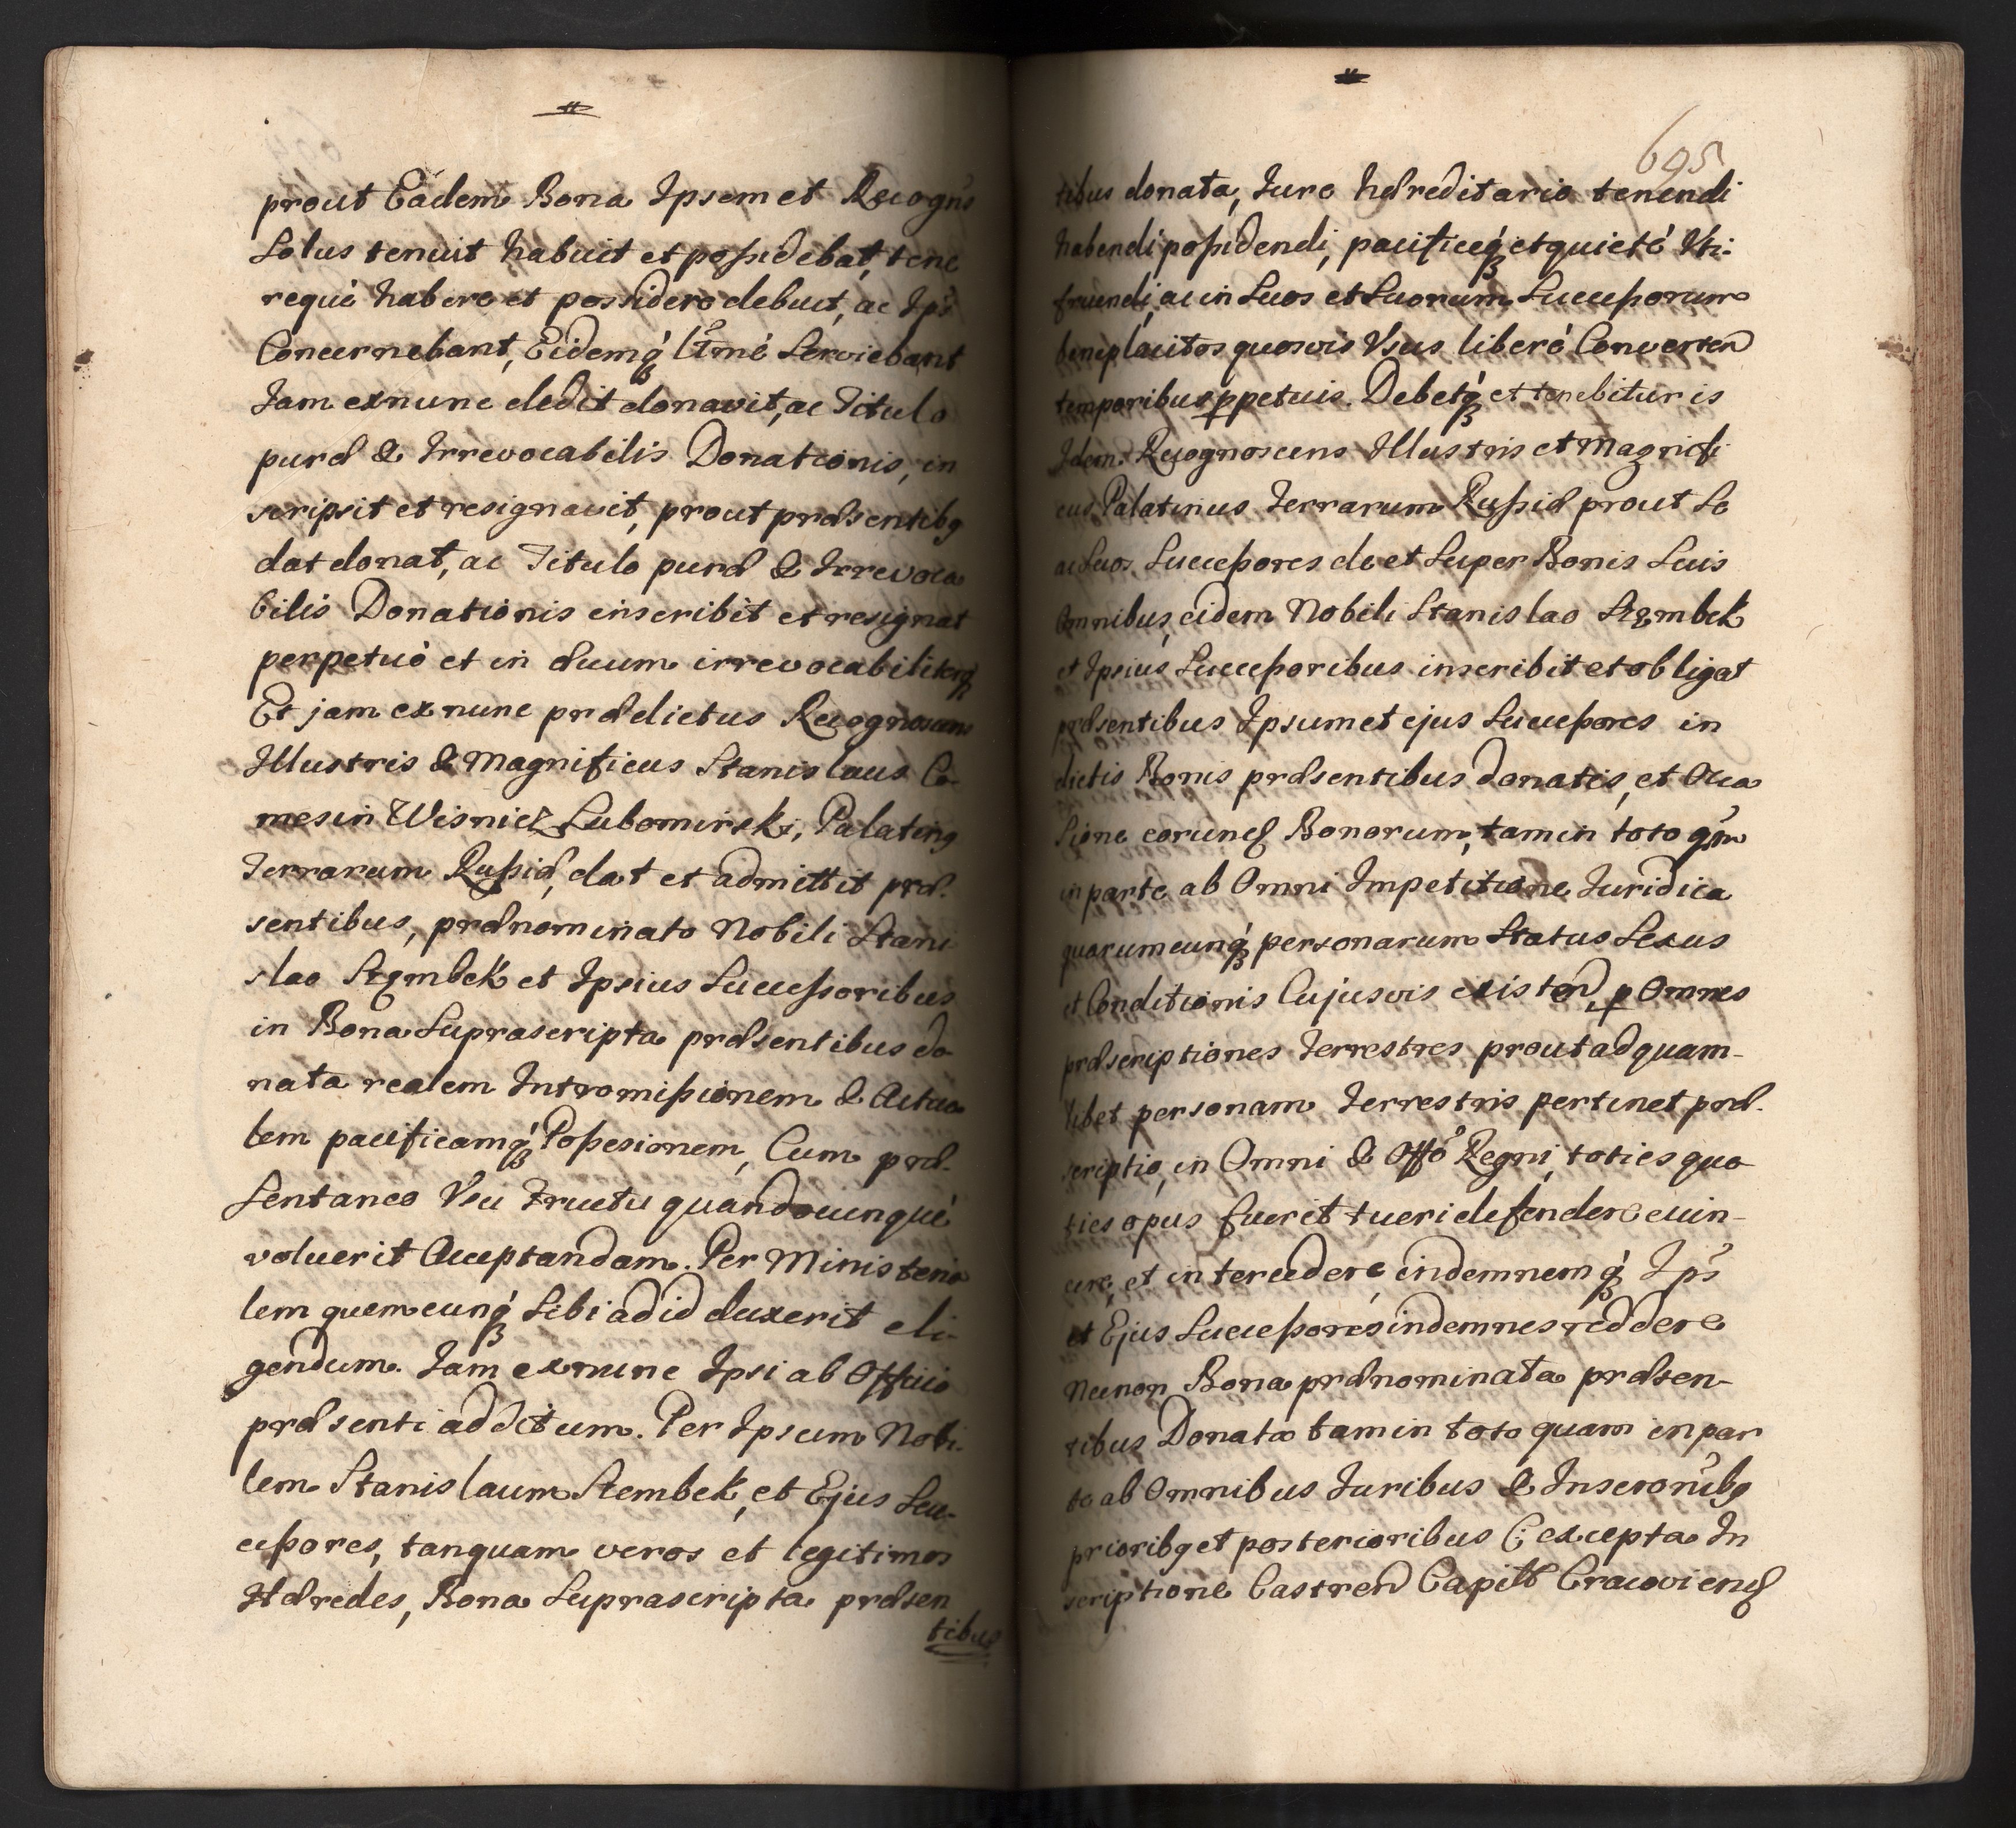 prout Eadem Bona Ipsemet Recogns
Solus tenuit habuit et possidebat, tene
requé habere et possidere debuit, ac Ips
Concernebant, Eidemq́ꝫ ltmé Serviebant
Jam exnunc dedit donavit, ac Titulo
puræ & Irrevocabilis Donationis, in
scripsit et resignavit, prout præsentibꝯ
dat donat, ac Titulo puræ & Irrevoca
bilis Donationis inscribit et resignat
perpetuó et in ævum irrevocabiliterq́ꝫ
Et jam exnunc prædictus Recognoscens
Illustris & Magnificus Stanislaus Co-
mes in Wisnicz Lubomirski, Palatinꝯ
Terrarum Russiæ, dat et admittit præ-
sentibus, prænominato Nobili Stani
slao Stęmbek et Ipsius Successoribus
in Bona Suprascripta præsentibus do
nata realem Intromissionem & Actua
lem pacificamq́ꝫ Possesionem, Cum præ-
sentaneo Usu Fructu quandocunqué
voluerit Acceptandam. Per Ministeria
lem quemcunq́ꝫ Sibi ad id duxerit eli-
gendum. Jam exnunc Ipsi ab Officio
præsenti additum. Per Ipsum Nobi-
lem Stanislaum Stembek, et Ejus Suc-
cessores, tanquam veros et legitimos
Hæredes, Bona Suprascripta præsen
tibus
695
tibus donata, Jure hæreditario tenendi
habendi possidendi, pacificeq́ꝫ et quieté Uti-
fruendi, ac in Suos et Suorum Successorum
beneplacitos quosvis Usus liberé Converten
temporibus ꝑpetuis. Debetq́ꝫ et tenebitur is
Idem Recognoscens Illustris et Magnifi
cus Palatinus Terrarum Russiæ prout Se
ac Suos Successores de et Super Bonis Suis
Omnibus, eidem Nobili Stanislao Stęmbek
et Ipsius Successoribus inscribit et obligat
præsentibus Ipsum et ejus Successores in
dictis Bonis præsentibus donatis, et Occa
sione eorund Bonorum, tam in toto qm
in parte ab Omni Impetitione Juridica
quorumcunq́ꝫ personarum Status Sexus
et Conditionis Cujusvis existen, ꝑ Omnes
præscriptiones Terrestres prout ad quam-
libet personam Terrestris pertinet præ-
scriptio, in Omni & Offo Regni, toties quo-
ties opus fuerit tueri defendere evin-
cere, et intercedere, indemnemq́ꝫ Ips
et Ejus Successores indemnes reddere
Necnon Bona prænominata præsen-
tibus Donata tam in toto quam in par
te ab Omnibus Juribus & Inscronibꝯ
prioribꝯ et posterioribus (: excepta In
scriptione Castren Capitli Cracoviens